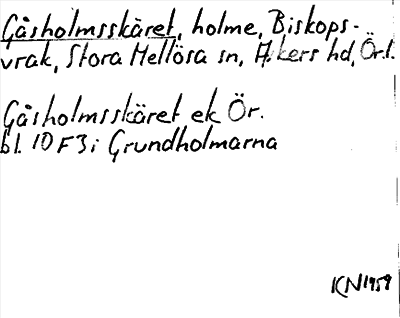 Gåsholmsskäret, holme, Biskops-
vrak, Stora Mellösa sn, Askers hd, Ör.l.
Gåsholmsskäret ek Ör.
bl. 10 F3i Grundholmarna
KN 1959